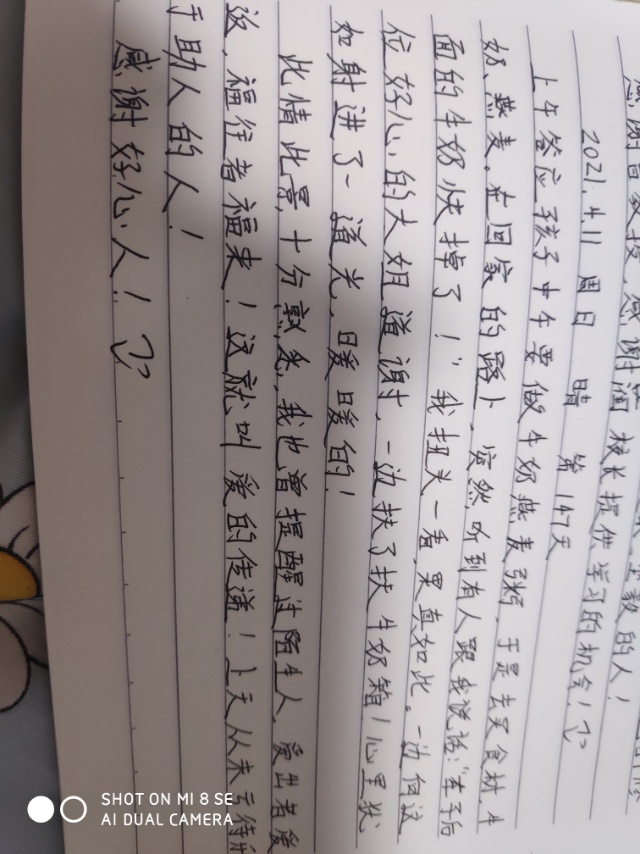 感谢
校长提供学习的机会！
2021.4.11 周日 晴 第147天
上午答应孩子中午要做牛奶燕麦粥，于是去买食材，牛
奶、燕麦，在回家的路上，突然听到有人跟我说话："车子后
面的牛奶快掉了！"我扭头一看，果真如此。一边向这
位好心的大姐道谢，一边扶了扶牛奶箱！心里犹
如射进了一道光，暖暖的！
此情此景，十分熟悉，我也曾提醒过陌生人，爱出者爱
返，福往者福来！这就叫爱的传递！上天从未亏待
手助人的人！
感谢好心人！
SHOT ON MI 8 SE
AI DUAL CAMERA